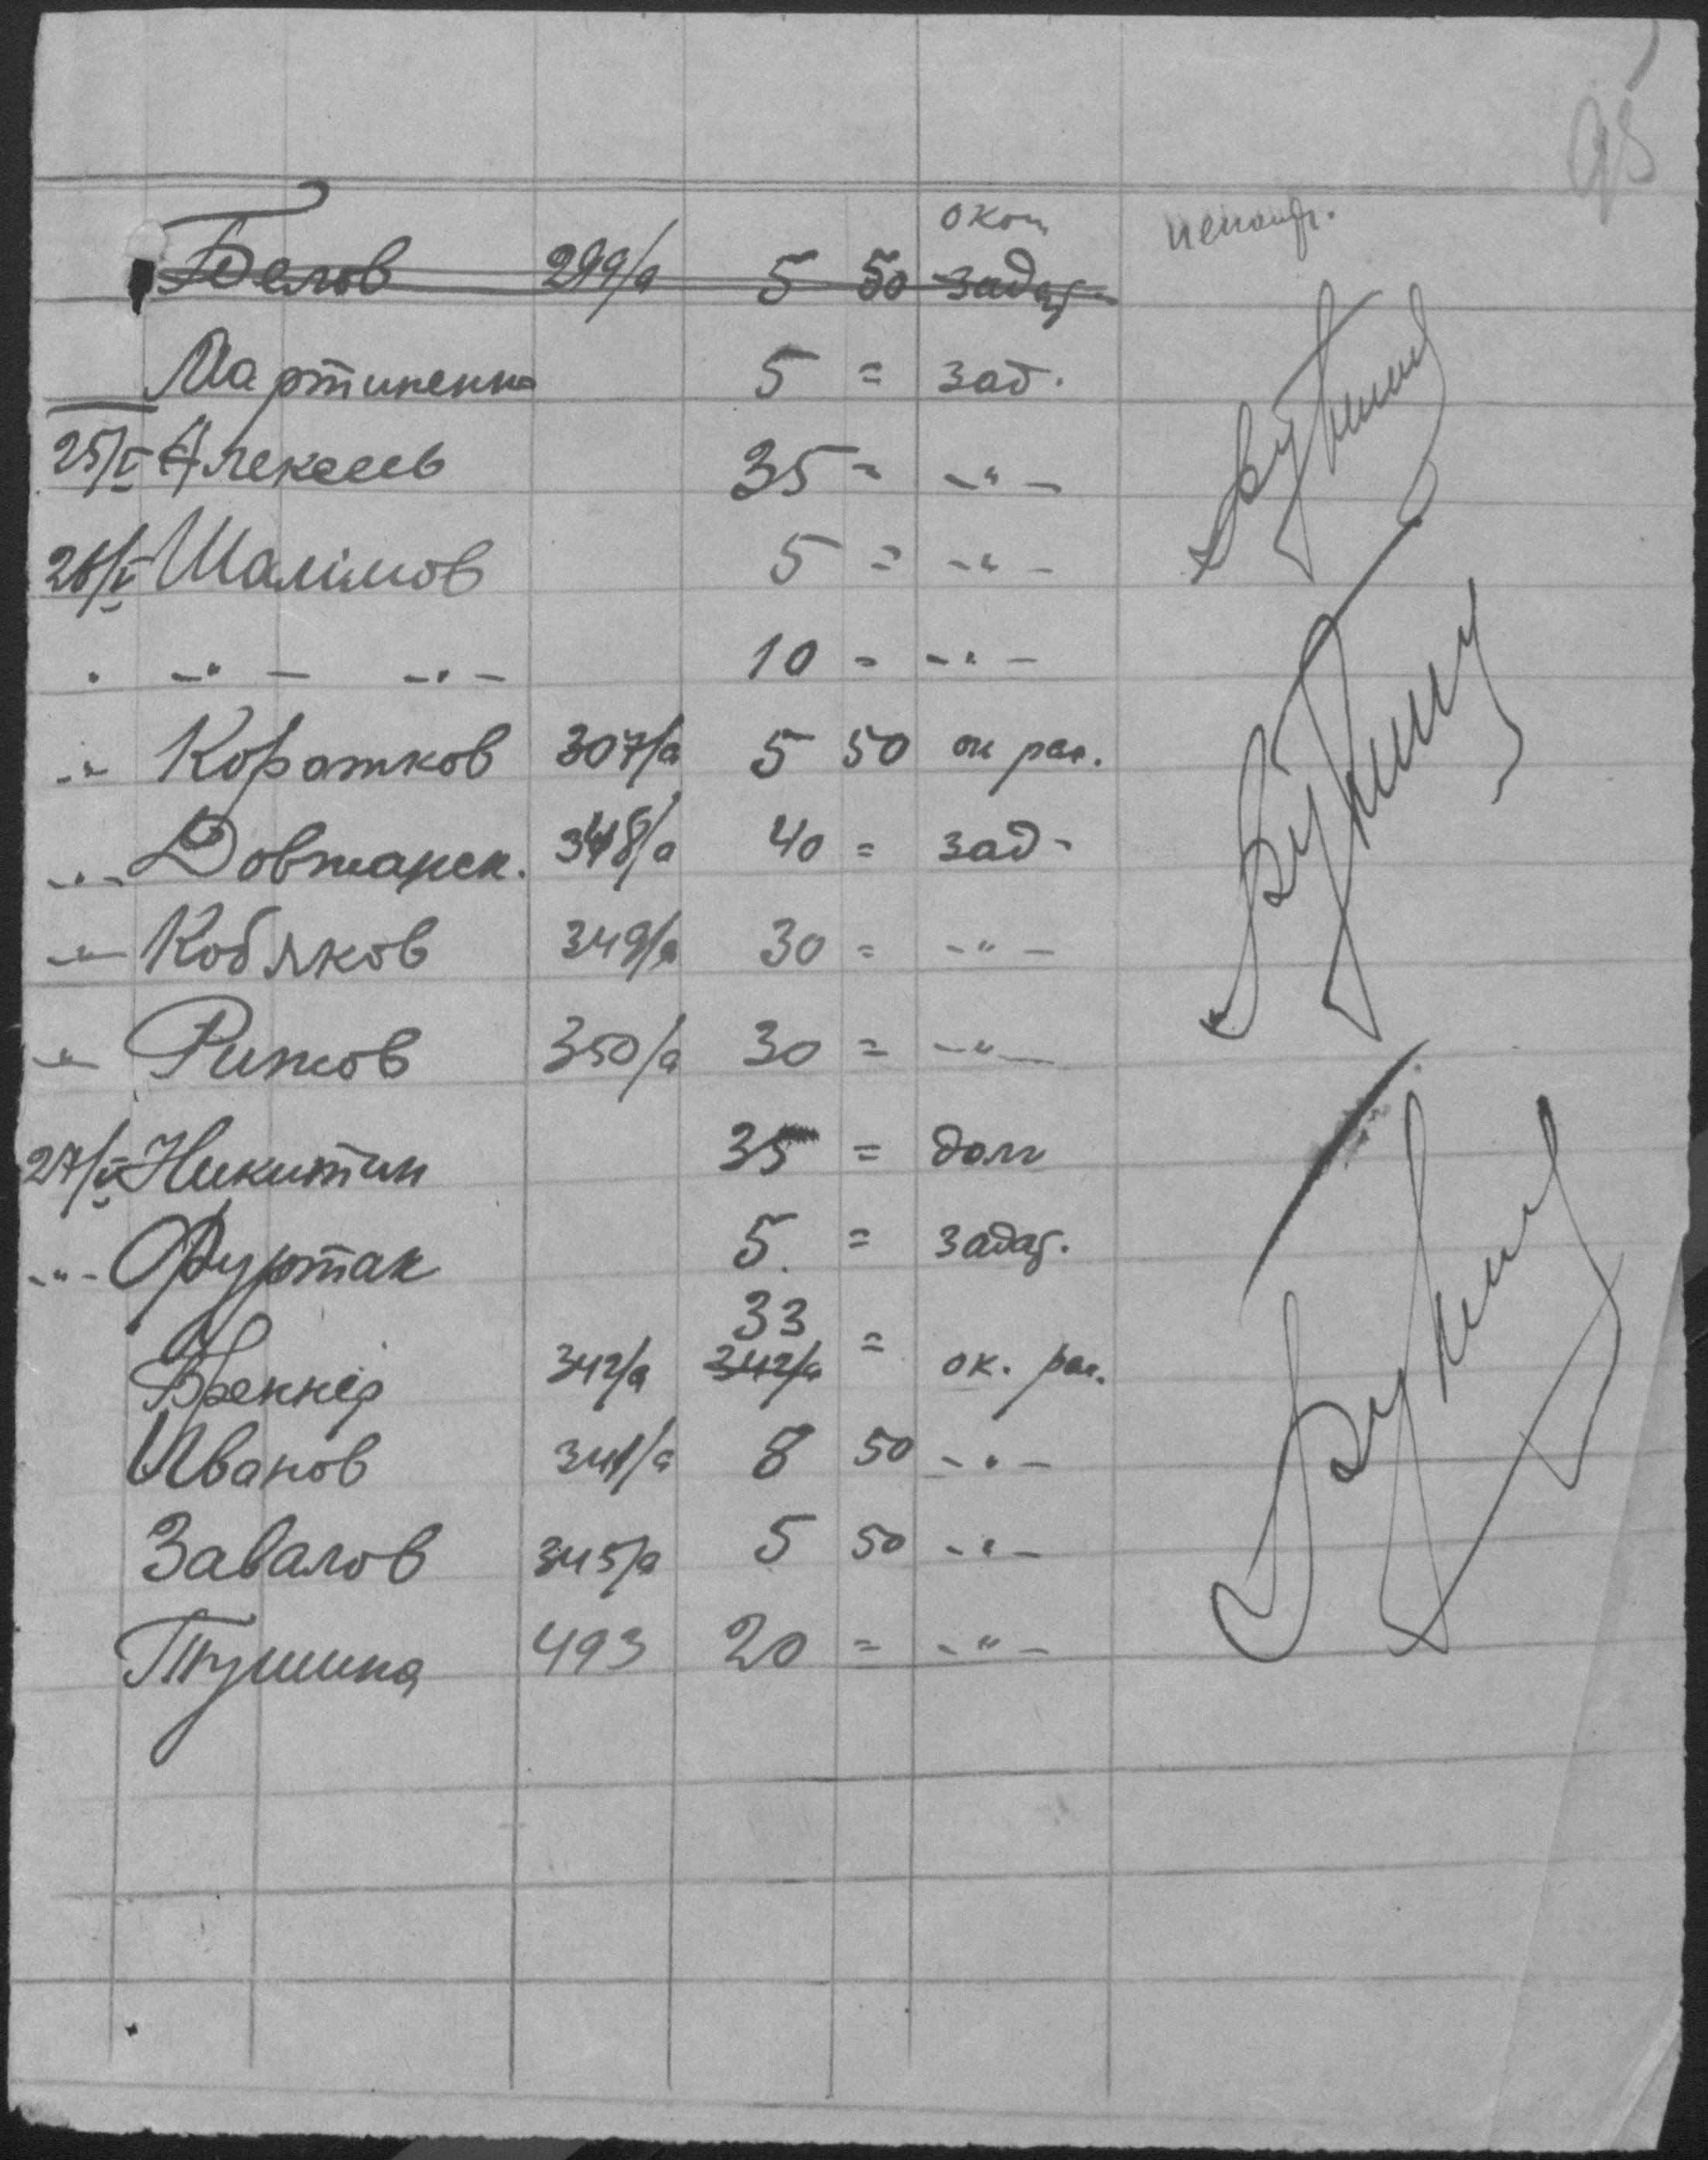 95
окон
Белов 299/а 5 50 задат
Мартиненко 5 = зад.
25/V Алексеев 35 = -"-
26/V Шалімов 5 = -"-
" -"- -"- 10 = -"-
-"- Коротков 307/а 5 50 ок рас.
-"- Довжанск. 348/а 40 = зад-
-"- Кобяков 349/а 30 = -"-
-"- Рижов 350/а 30 = -"-
27/V Никитин 35 = долг
-"- Фуртак 5. = задат.
33
342/а 342/а = ок. рас.
Иванов 341/а 8 50 -"-
Завалов 345/а 5 50 -"-
493 20 = -"-